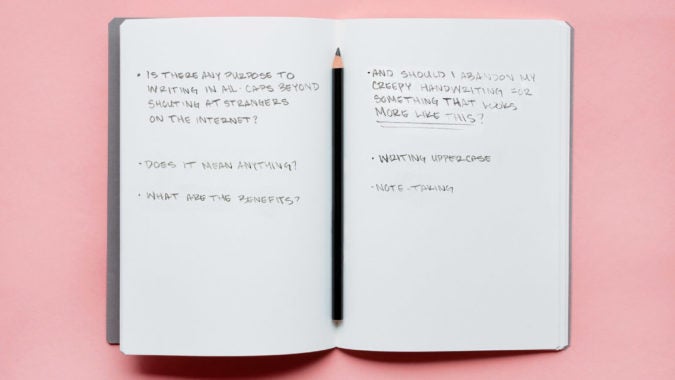 • IS THERE ANY PURPOSE TO
WRITING IN ALL-CAPS BEYOND
SHOUTING AT STRANGERS
ON THE INTERNET?
• DOES IT MEAN ANYTHING?
• WHAT ARE THE BENEFITS?
• AND SHOULD I ABANDON MY
CREEPY HANDWRITING FOR
SOMETHING THAT LOOKS
MORE LIKE THIS?
• WRITING UPPERCASE
• NOTE-TAKING